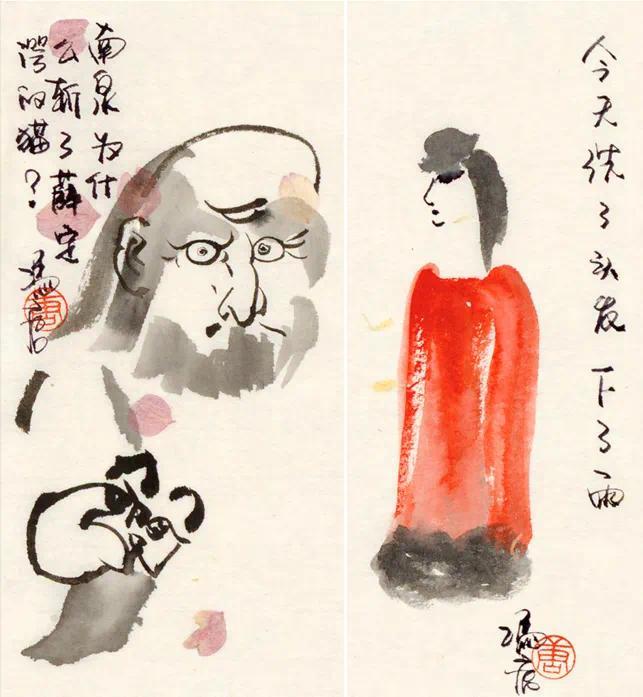 南泉为什
么斩了薛定
谔的猫？
冯唐
唐
今天洗了头发 下了雨
冯唐
唐